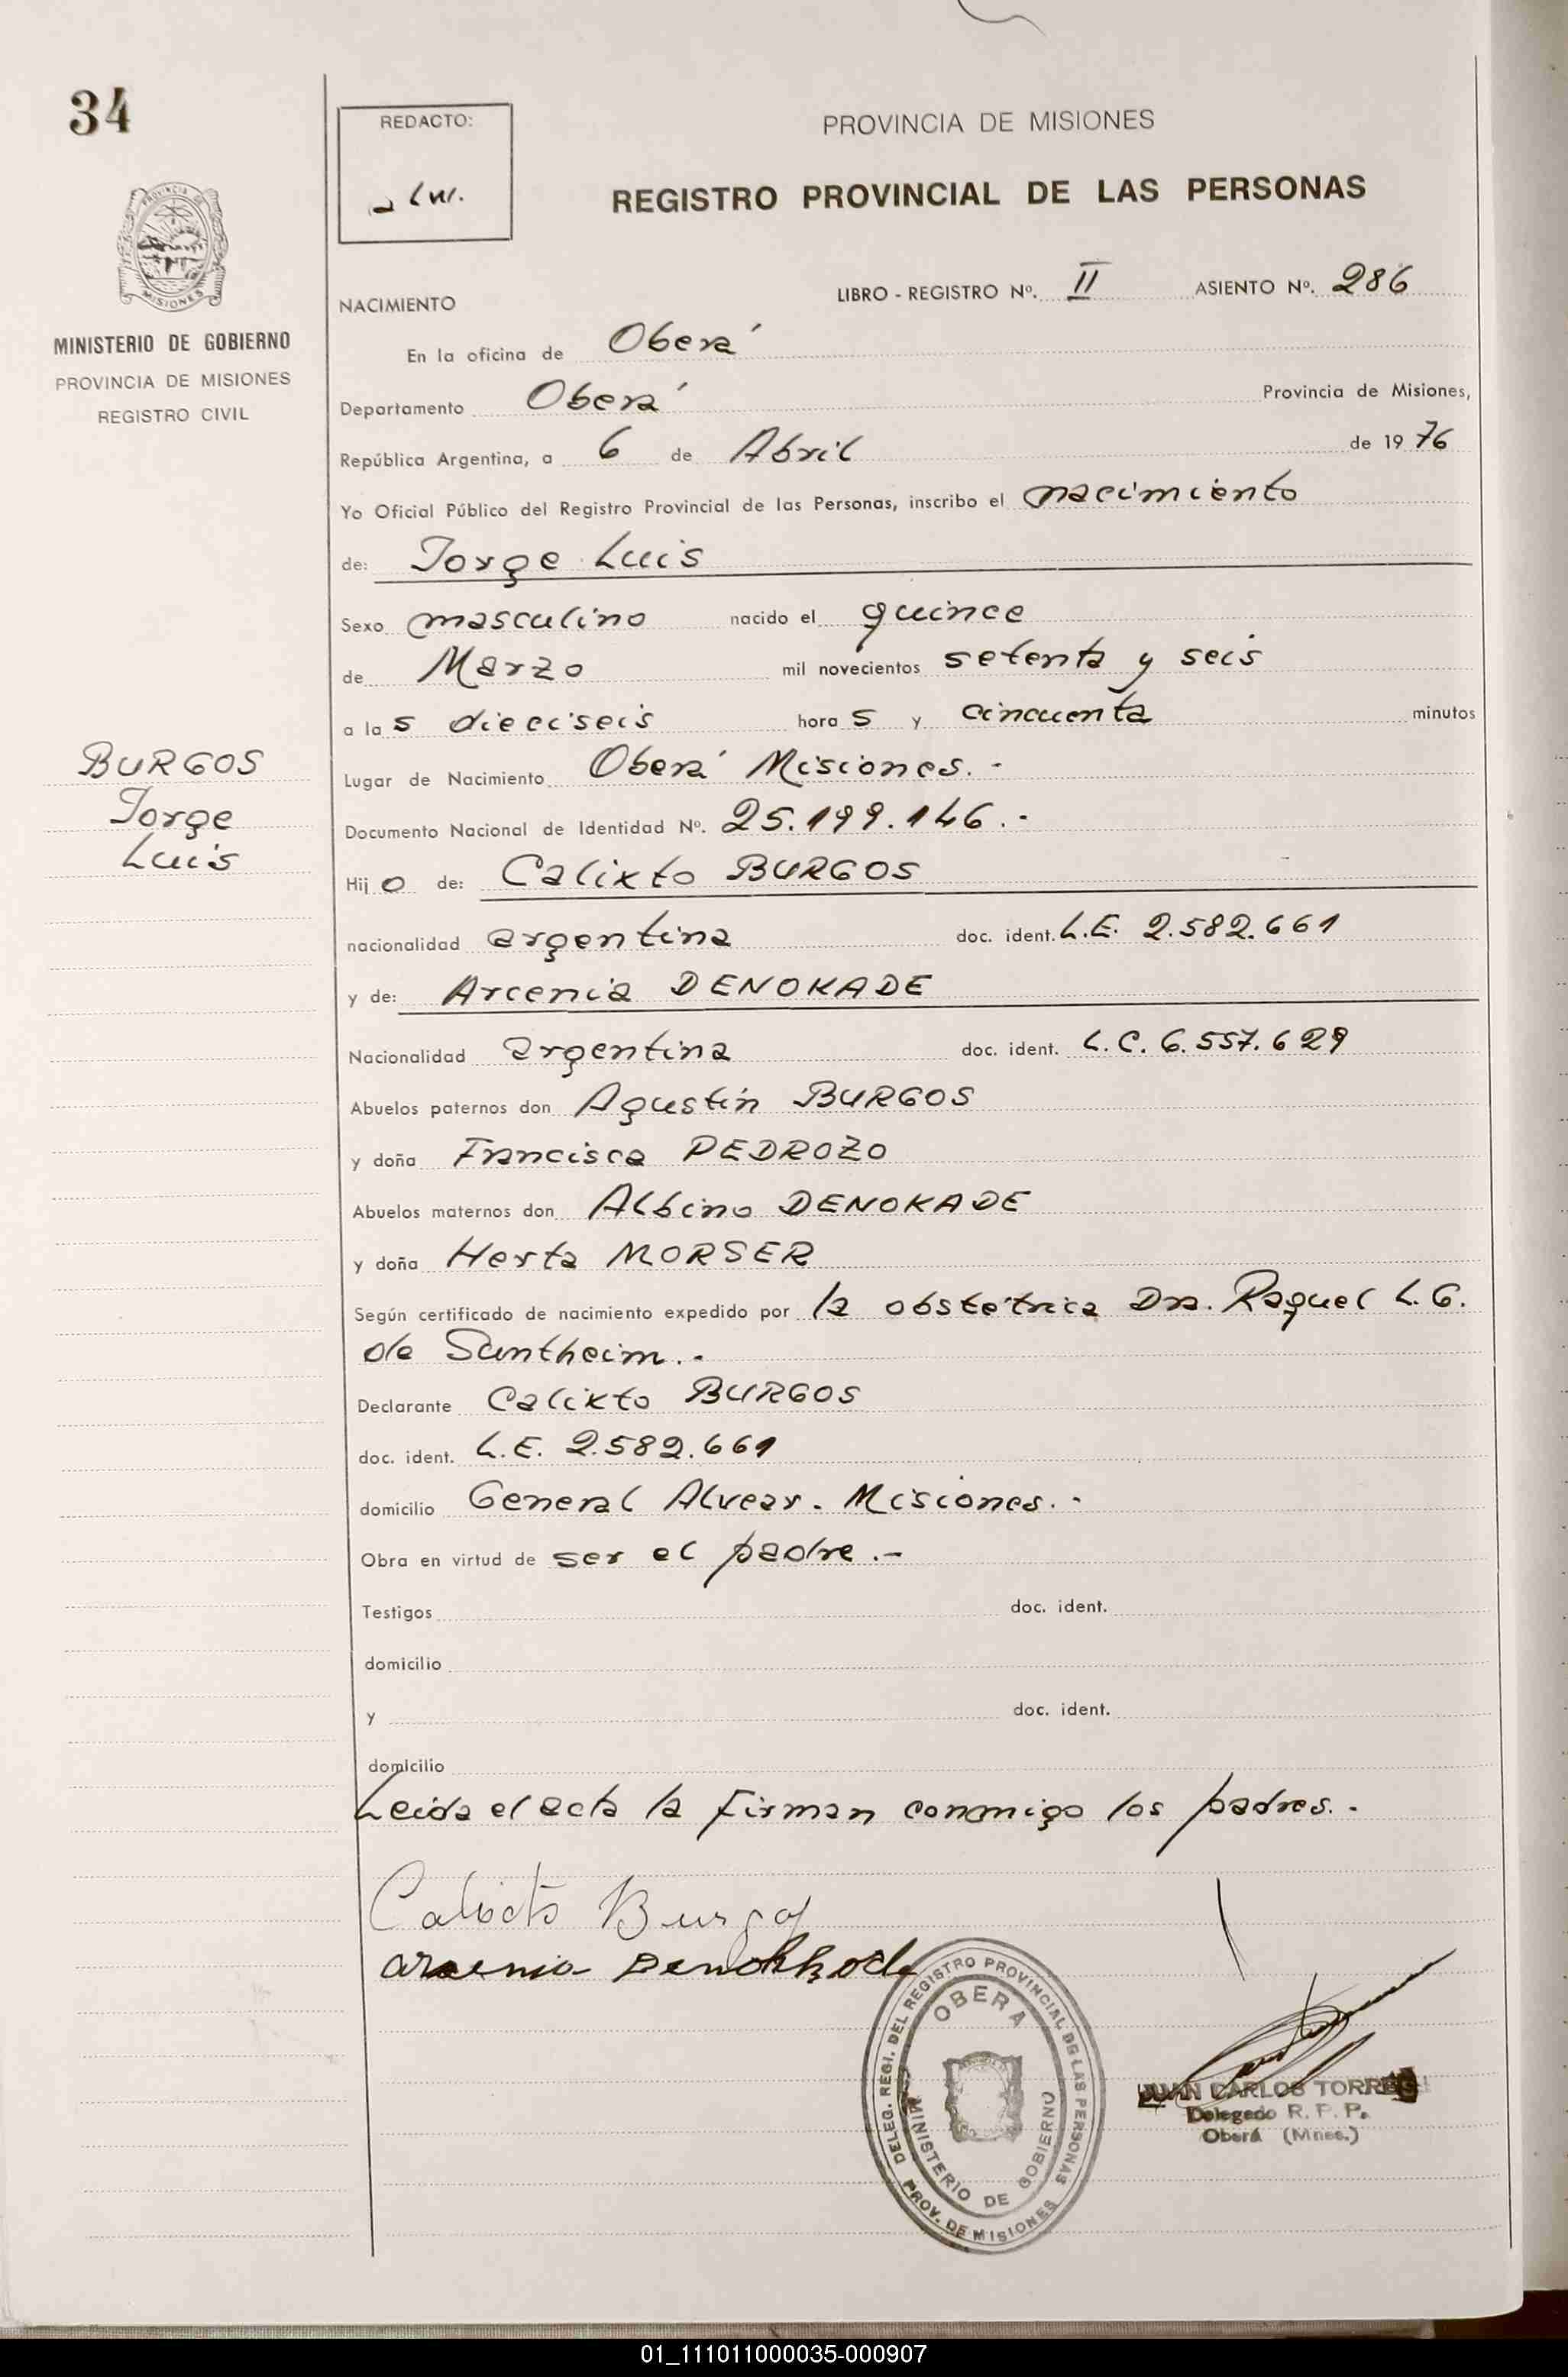 34
REDACTO:
PROVINCIA DE MISIONES
REGISTRO PROVINCIAL DE LAS PERSONAS
PROVINCIA DE
MISIONES
MINISTERIO DE GOBIERNO
PROVINCIA DE MISIONES
REGISTRO CIVIL
LIBRO - REGISTRO Nº. II ASIENTO Nº. 286
NACIMIENTO
En la oficina de Oberá
Departamento Oberá Provincia de Misiones,
República Argentina, a 6 de Abril de 1976
Yo Oficial Público del Registro Provincial de las Personas, inscribo el nacimiento
de: Jorge Luis
Sexo masculino nacido el quince
de Marzo mil novecientos setenta y seis
a las dieciseis horas y cincuenta minutos
BURGOS
Jorge
Luis
Lugar de Nacimiento Oberá Misiones.-
Documento Nacional de Identidad Nº. 25.199.146.-
Hijo de: Calixto BURGOS
nacionalidad argentina doc. ident. L.E. 2.582.661
y de: Arcenia DENOKADE
Nacionalidad argentina doc. ident. L.C. 6.557.629
Abuelos paternos don Agustín BURGOS
y doña Francisca PEDROZO
Abuelos maternos don Albino DENOKADE
y doña Herta MORSER
Según certificado de nacimiento expedido por la obstétrica Dra. Raquel L.G.
de Suntheim.-
Declarante Calixto BURGOS
doc. ident. L.E. 2.582.661
domicilio General Alvear. Misiones.-
Obra en virtud de ser el padre.-
Testigos doc. ident.
domicilio
y doc. ident.
domicilio
Leida el acta la firman conmigo los padres.-
Calixto Burgos
DELEG. REGI. DEL REGISTRO PROVINCIAL DE LAS PERSONAS
OBERA
MINISTERIO DE GOBIERNO
PROV. DE MISIONES
JUAN CARLOS TORRES
Delegado R. P. P.
Oberá (Mnes.)
01_111011000035-000907